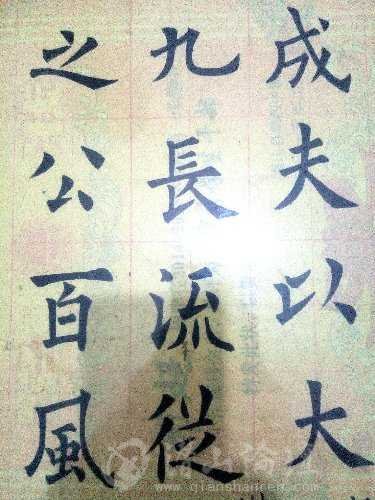 成夫以大
九長流從
之公百風
www.qianshanren.com